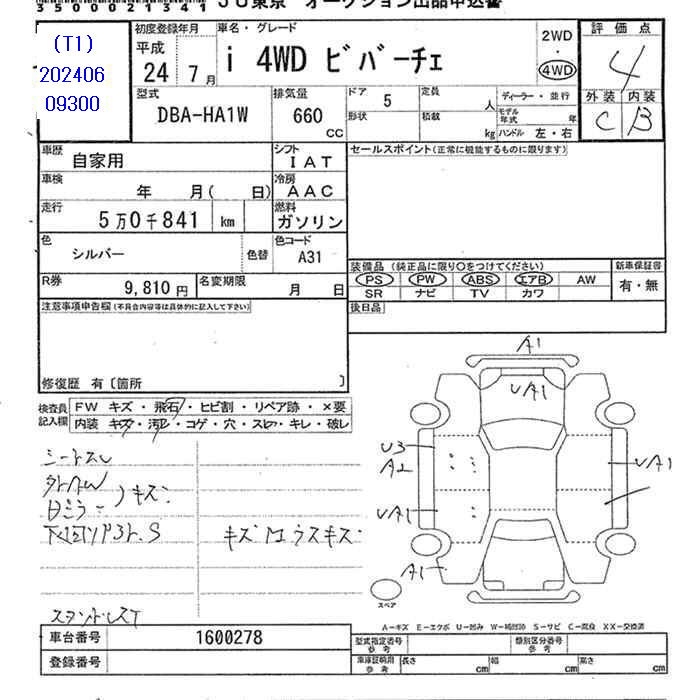 350002150021321 JU東京 オークション出品申込書
(T1)
202406
09300
初度登録年月 車名・グレード 2WD 評価点
平成 24年 7月 i 4WD ビバーチェ 4WD 4
型式 排気量 ドア 5 定員 人 ディーラー・並行 外装 内装
DBA-HA1W 660 CC 形状 積載 kg モデル年式 年 C B
ハンドル 左・右
車歴 自家用 シフト IAT セールスポイント(正常に機能するものに限ります)
車検 年 月( 日) 冷房 AAC
走行 5万0千841 km 燃料 ガソリン
色 シルバー 色替 色コード A31
装備品(純正品に限り○をつけてください) 新車保証書
R券 9,810円 名変期限 月 日 PS PW ABS エアB AW 有・無
SR ナビ TV カワ
注意事項申告欄(不具合内容等は具体的に記入して下さい) 後日品
修復歴 有〔箇所 〕
検査員記入欄 FW キズ・飛石・ヒビ割・リペア跡・×要
内装 キズ・汚レ・コゲ・穴・スレ・キレ・破レ
A1
UA1
U3
A2
UA1
UA1
A1
シートスレ
キズ
キズ ウスキズ
スペア
A-キズ E-エクボ U-凹み S-サビ C-腐食 XX-交換済
車台番号 1600278 型式指定番号 参考 類別区分番号 参考
登録番号 車庫証明用 参考 長さ cm 幅 cm 高さ cm